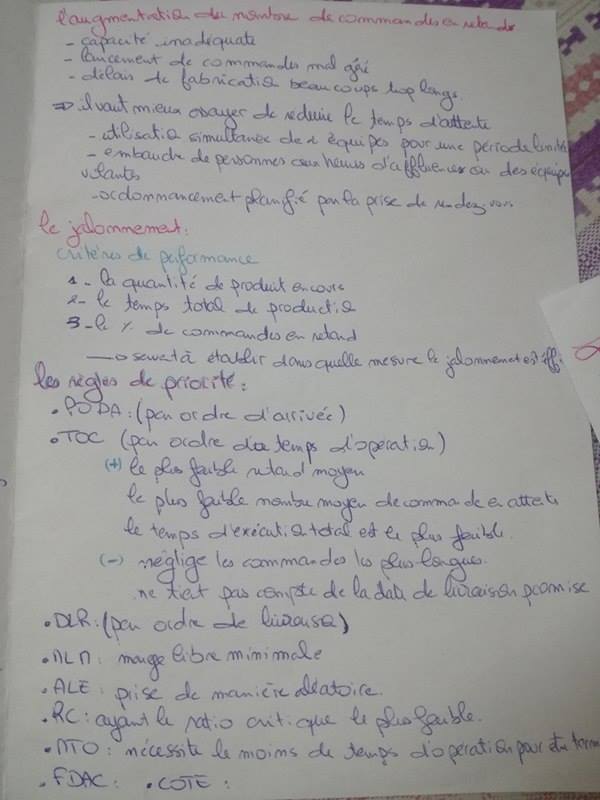 l'augmentation du nombre de commandes en retards
- capacité inadéquate
- lancement de commandes mal géré
- délais de fabrication beaucoups trop longs.
⇒ il vaut mieux essayer de réduire le temps d'attente
- utilisation simultanée de 2 équipes pour une période limitée
- embauche de personnes aux heures d'affluences ou des équipes
volantes
- ordonnancement planifié par la prise de rendez-vous
le jalonnement:
critères de performance
1 - la quantité de produit en cours
2 - le temps total de production
3 - le % de commandes en retard
servent à établir dans quelle mesure le jalonnement est effi
les règles de priorité:
• PODA: (par ordre d'arrivée)
• TOC (par ordre de temps d'opération)
(+) le plus faible retard moyen
le plus faible nombre moyen de commande en attente
le temps d'exécution total est le plus faible.
(-) néglige les commandes les plus longues.
ne tient pas compte de la date de livraison promise
• DLR: (par ordre de livraison)
• MLM: marge libre minimale
• ALE: prise de manière aléatoire.
• RC: ayant le ratio critique le plus faible.
• MTO: nécessite le moins de temps d'opération pour être term
• FDAC: • COTE: